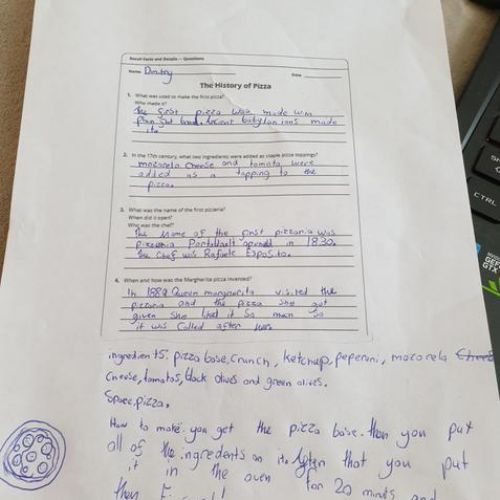 Recall Facts and Details — Questions
Name Dmitry Date
The History of Pizza
1. What was used to make the first pizza?
Who made it?
the first pizza was made with
plain flat bread. Ancient babylonians made
it.
2. In the 17th century, what two ingredients were added as staple pizza toppings?
mozorela cheese and tomato were
added as a topping to the
pizza.
3. What was the name of the first pizzeria?
When did it open?
Who was the chef?
the name of the first pizzaria was
pizzaria Portalbalt opened in 1830.
the chef was Rafaele Esposito.
4. When and how was the Margherita pizza invented?
In 1889 Queen margharita visited the
pizzaria and the pizza she got
given she liked it so man so
it was called after hers
ingredients: pizza base, crunch, ketchup, peperoni, mozorela
cheese, tomatos, black olives and green olives.
Space pizza.
How to make: you get the pizza base. then you put
all of the ingredents on it. After that you put
it in the oven for 20 minuts and
then
CTRL
GTX